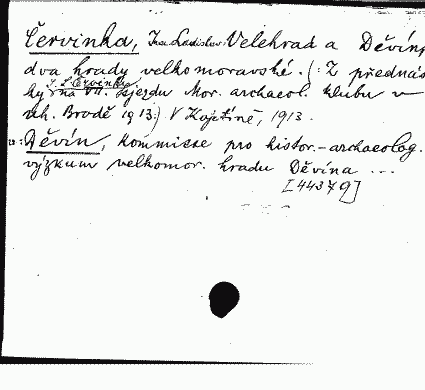 Červinka, Inn. Ladislav: Velehrad a Děvín,
dva hrady velkomoravské. (: Z přednáš
I. L. Červinka
ky na VI. sjezdu Mor. archaeol. klubu v
Uh. Brodě 1913:) V Kojetíně, 1913.
Děvín, kommisse pro histor.-archaeolog.
výzkum velkomor. hradu Děvína ...
[44379]